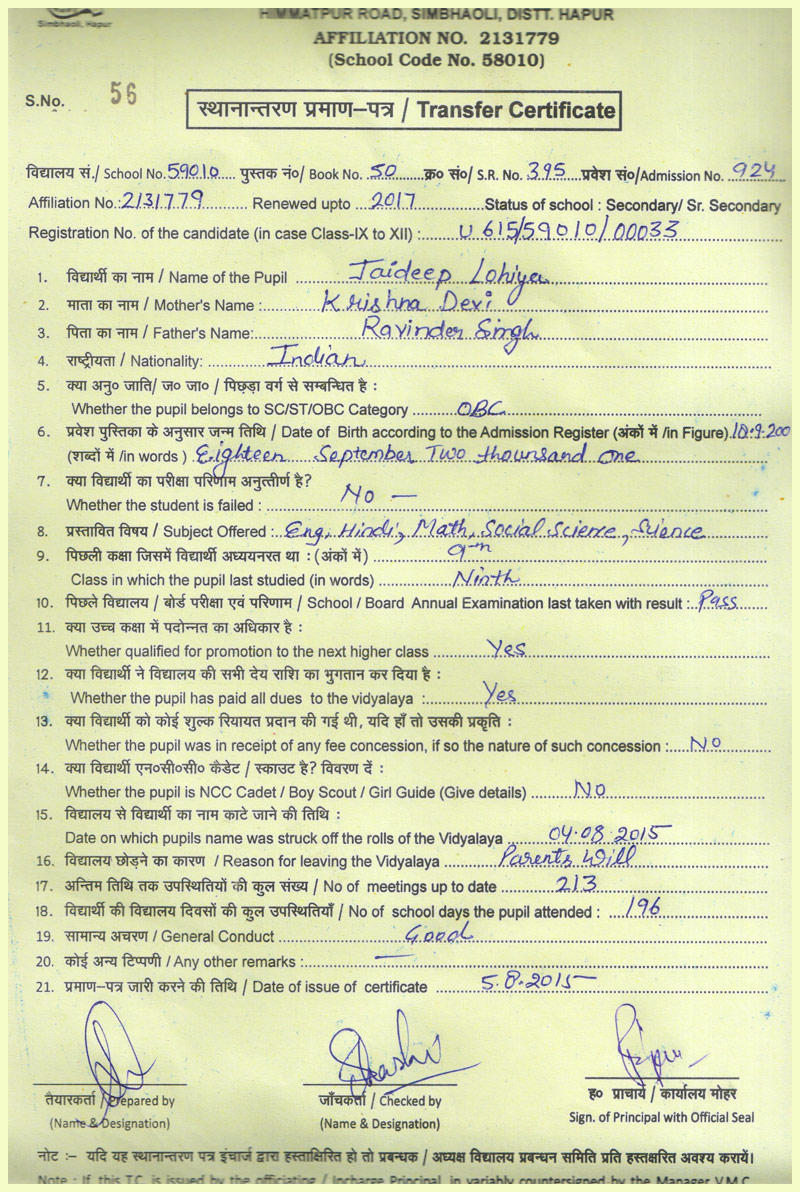 Simbhaoli, Hapur
HIMMATPUR ROAD, SIMBHAOLI, DISTT. HAPUR
AFFILIATION NO. 2131779
(School Code No. 58010)
S.No. 56
स्थानान्तरण प्रमाण–पत्र / Transfer Certificate
विद्यालय सं./ School No. 59010 पुस्तक नं०/ Book No. 50 क्र० सं०/ S.R. No. 395 प्रवेश सं०/Admission No. 924
Affiliation No.: 2131779 Renewed upto 2017 Status of school : Secondary/ Sr. Secondary
Registration No. of the candidate (in case Class-IX to XII) : U 615/59010/00033
1. विद्यार्थी का नाम / Name of the Pupil Jaideep Lohiya
2. माता का नाम / Mother's Name : Krishna Devi
3. पिता का नाम / Father's Name: Ravinder Singh
4. राष्ट्रीयता / Nationality: Indian
5. क्या अनु० जाति/ ज० जा० / पिछड़ा वर्ग से सम्बन्धित है :
Whether the pupil belongs to SC/ST/OBC Category OBC
6. प्रवेश पुस्तिका के अनुसार जन्म तिथि / Date of Birth according to the Admission Register (अंकों में /in Figure) 18.9.200
(शब्दों में /in words ) Eighteen September Two thounsand one
7. क्या विद्यार्थी का परीक्षा परिणाम अनुत्तीर्ण है?
Whether the student is failed : No —
8. प्रस्तावित विषय / Subject Offered : Eng, Hindi, Math, Social Science, Science
9. पिछली कक्षा जिसमें विद्यार्थी अध्ययनरत था : (अंकों में) 9th
Class in which the pupil last studied (in words) Ninth
10. पिछले विद्यालय / बोर्ड परीक्षा एवं परिणाम / School / Board Annual Examination last taken with result : Pass
11. क्या उच्च कक्षा में पदोन्नत का अधिकार है :
Whether qualified for promotion to the next higher class Yes
12. क्या विद्यार्थी ने विद्यालय की सभी देय राशि का भुगतान कर दिया है :
Whether the pupil has paid all dues to the vidyalaya : Yes
13. क्या विद्यार्थी को कोई शुल्क रियायत प्रदान की गई थी, यदि हाँ तो उसकी प्रकृति :
Whether the pupil was in receipt of any fee concession, if so the nature of such concession : No
14. क्या विद्यार्थी एन०सी०सी० कैडेट / स्काउट है? विवरण दें :
Whether the pupil is NCC Cadet / Boy Scout / Girl Guide (Give details) No
15. विद्यालय से विद्यार्थी का नाम काटे जाने की तिथि :
Date on which pupils name was struck off the rolls of the Vidyalaya 04.08.2015
16. विद्यालय छोड़ने का कारण / Reason for leaving the Vidyalaya Parents Will
17. अन्तिम तिथि तक उपस्थितियों की कुल संख्य / No of meetings up to date 213
18. विद्यार्थी की विद्यालय दिवसों की कुल उपस्थितियाँ / No of school days the pupil attended : 196
19. सामान्य अचरण / General Conduct Good
20. कोई अन्य टिप्पणी / Any other remarks : —
21. प्रमाण–पत्र जारी करने की तिथि / Date of issue of certificate 5.8.2015
तैयारकर्ता / Prepared by जाँचकर्ता / Checked by ह० प्राचार्य / कार्यालय मोहर
(Name & Designation) (Name & Designation) Sign. of Principal with Official Seal
नोट :– यदि यह स्थानान्तरण पत्र इंचार्ज द्वारा हस्ताक्षिरित हो तो प्रबन्धक / अध्यक्ष विद्यालय प्रबन्धन समिति प्रति हस्तक्षरित अवश्य करायें।
Note : If this T.C. is issued by the officiating / Incharge Principal, in variably countersigned by the Manager V.M.C.